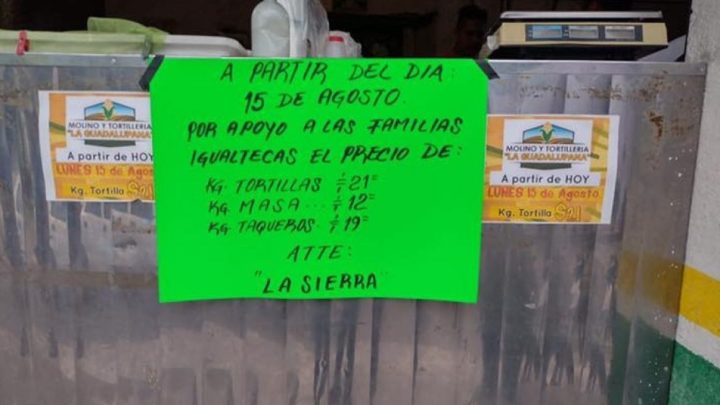 A PARTIR DEL DIA:
15 DE AGOSTO.
POR APOYO A LAS FAMILIAS
IGUALTECAS EL PRECIO DE:
KG. TORTILLAS $21=
KG. MASA... $12=
KG. TAQUEROS. $19=
ATTE:
"LA SIERRA"
MOLINO Y TORTILLERIA
"LA GUADALUPANA"
A partir de HOY
LUNES 15 de Agosto
Kg. Tortilla $21
MOLINO Y TORTILLERIA
"LA GUADALUPANA"
A partir de HOY
LUNES 15 de Agosto
Kg. Tortilla $21